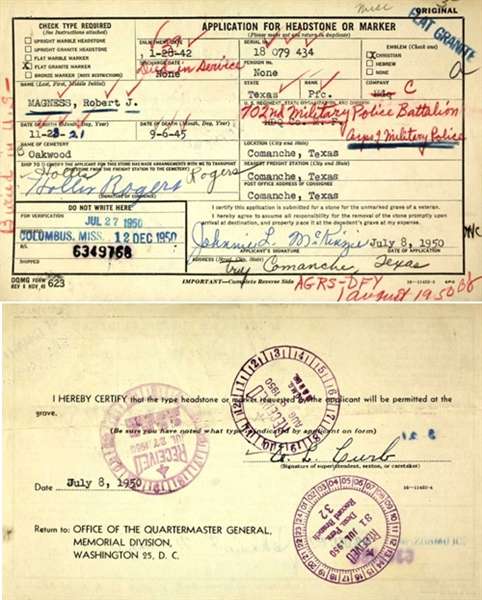 ORIGINAL
CHECK TYPE REQUIRED
(See Instructions attached)
APPLICATION FOR HEADSTONE OR MARKER
(Please make out and return in duplicate)
UPRIGHT MARBLE HEADSTONE
UPRIGHT GRANITE HEADSTONE
FLAT MARBLE MARKER
X FLAT GRANITE MARKER
BRONZE MARKER (NOTE RESTRICTIONS)
ENLISTMENT DATE
1-28-42
DISCHARGE DATE
None
Died in Service
SERIAL No.
18 079 434
PENSION No.
None
EMBLEM (Check one)
X CHRISTIAN
HEBREW
NONE
FLAT GRANITE
NAME (Last, First, Middle Initial)
MAGNESS, Robert J.
STATE
Texas
RANK
Pfc.
COMPANY
C
702nd Military Police Battalion
Corps of Military Police
DATE OF BIRTH (Month, Day, Year)
11-28-21
DATE OF DEATH (Month, Day, Year)
9-6-45
NAME OF CEMETERY
Oakwood
LOCATION (City and State)
Comanche, Texas
SHIP TO (I CERTIFY THE APPLICANT FOR THIS STONE HAS MADE ARRANGEMENTS WITH ME TO TRANSPORT THE STONE FROM THE FREIGHT STATION TO THE CEMETERY)
Hollis Rogers
Hollis Rogers
NEAREST FREIGHT STATION (City and State)
Comanche, Texas
POST OFFICE ADDRESS OF CONSIGNEE
Comanche, Texas
DO NOT WRITE HERE
FOR VERIFICATION
JUL 27 1950
ORDERED
COLUMBUS, MISS. 12 DEC 1950
B/L
6349758
SHIPPED
I certify this application is submitted for a stone for the unmarked grave of a veteran.
I hereby agree to assume all responsibility for the removal of the stone promptly upon arrival at destination, and properly place it at the decedent's grave at my expense.
Johnnie L. McKinzie July 8, 1950
APPLICANT'S SIGNATURE DATE OF APPLICATION
ADDRESS (Street, City, State)
Comanche, Texas
OQMG FORM 623
REV 8 NOV 48
IMPORTANT—Complete Reverse Side
AGRS-DFY
1 August 1950
Buried in U.S.
I HEREBY CERTIFY that the type headstone or marker requested by the applicant will be permitted at the grave.
(Be sure you have noted what type is indicated by applicant on form)
RECEIVED
AUG 1950
RECEIVED
JUL 27 1950
(Signature of superintendent, sexton, or caretaker)
Date July 8, 1950
Return to: OFFICE OF THE QUARTERMASTER GENERAL,
MEMORIAL DIVISION,
WASHINGTON 25, D. C.
RECEIVED
31 JUL 1950
32